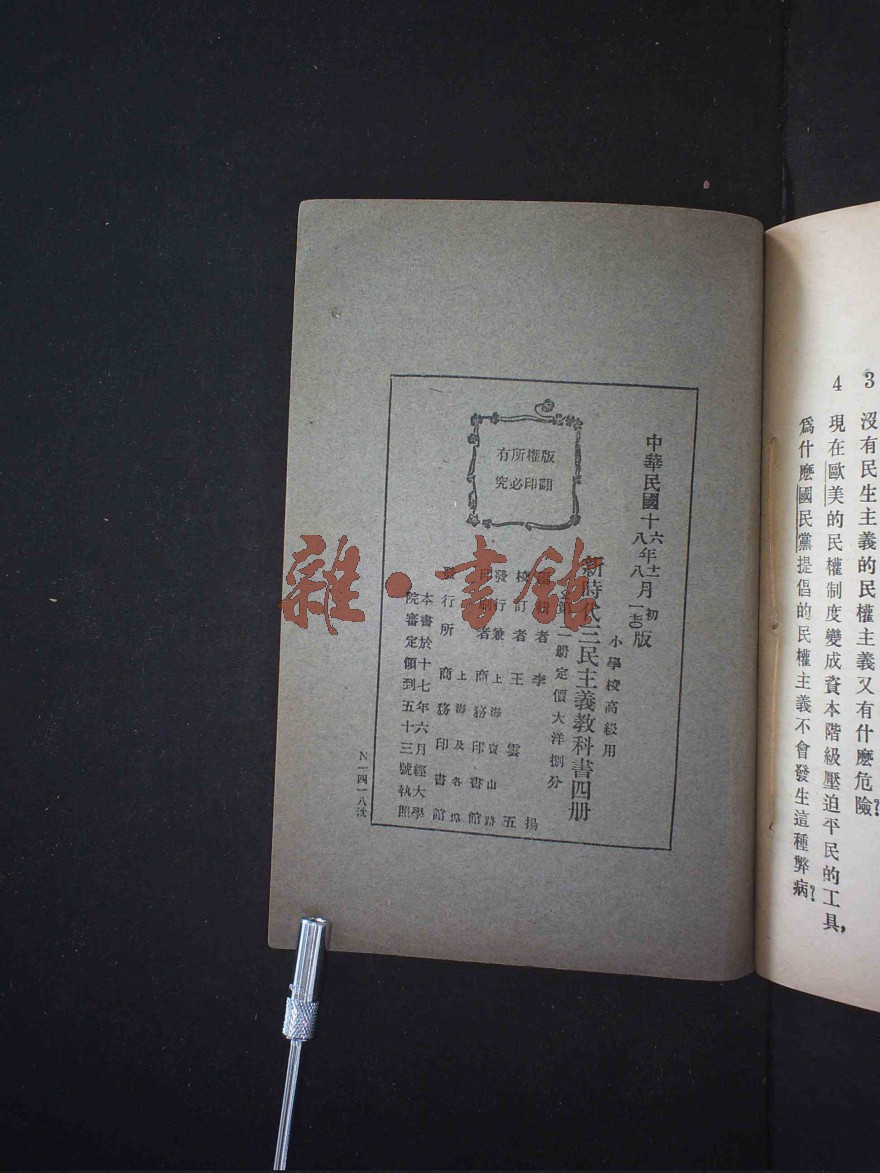 3 沒有民生主義的民權主義又有什麽危險?
4 現在歐美的民權制度變成資本階級壓迫平民的工具,
爲什麽國民黨提倡的民權主義不會發生這種弊病?
中華民國十六年十二月初版
八年八月一七〇版
小學校高級用
新時代三民主義教科書四册
册定價大洋捌分
者 李 揚
校訂者 王雲五
發行兼 上海寶山路
印刷者 商務印書館
上海及各埠
發行所 商務印書館
本書於十七年六月經大學
院審定領到五十三號執照
N一四一八沈
版權所有
翻印必究
雜·書館